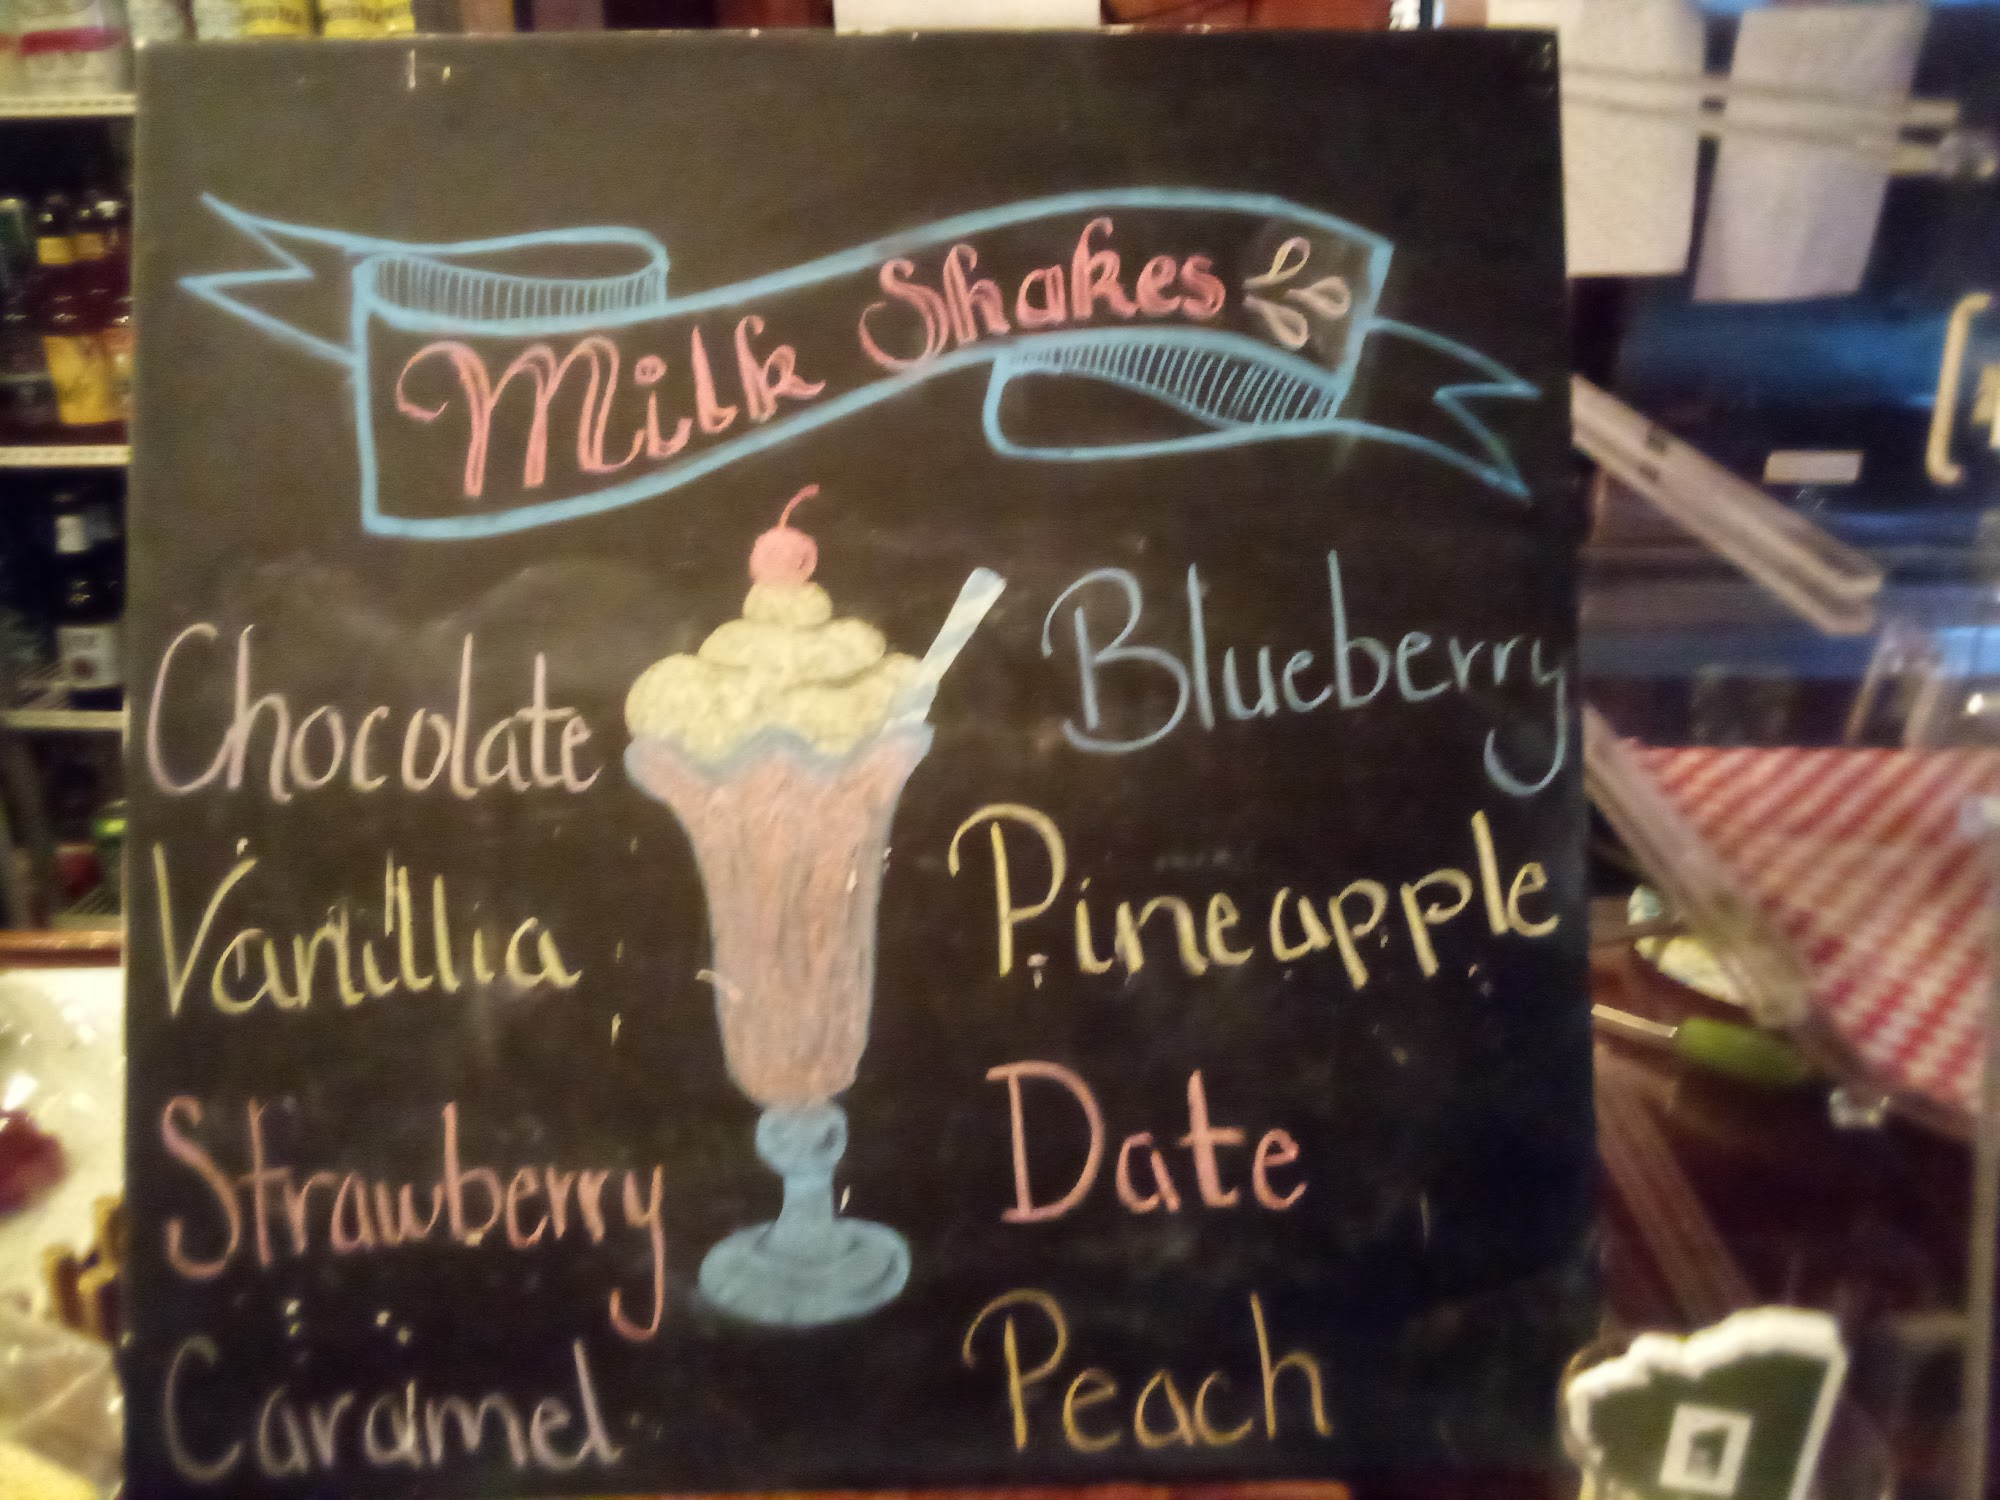 Milk Shakes
Chocolate
Vanillia
Strawberry
Caramel
Blueberry
Pineapple
Date
Peach